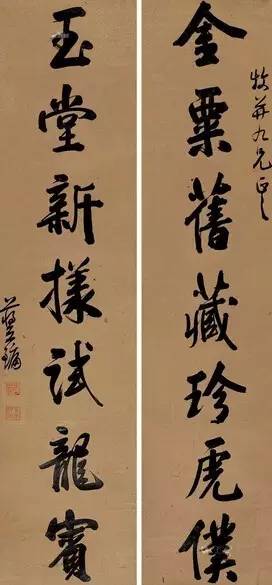 金粟舊藏珍虎僕
九兄正之
玉堂新樣試龍賓